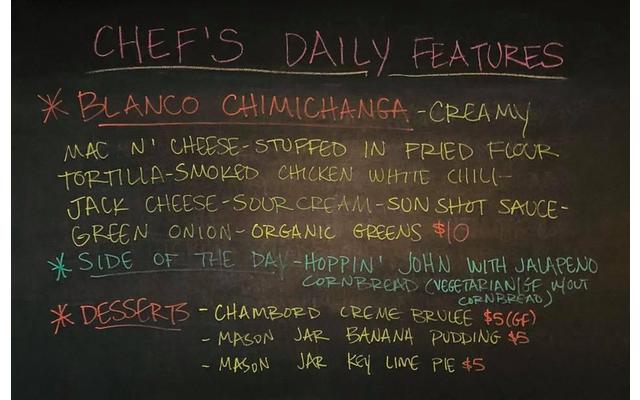 CHEF'S DAILY FEATURES
* BLANCO CHIMICHANGA - CREAMY
MAC N' CHEESE - STUFFED IN FRIED FLOUR
TORTILLA - SMOKED CHICKEN WHITE CHILI -
JACK CHEESE - SOUR CREAM - SUN SHOT SAUCE -
GREEN ONION - ORGANIC GREENS $10
* SIDE OF THE DAY - HOPPIN' JOHN WITH JALAPENO
CORNBREAD (VEGETARIAN|GF W/OUT
CORNBREAD)
* DESSERTS - CHAMBORD CREME BRULEE $5 (GF)
- MASON JAR BANANA PUDDING $5
- MASON JAR KEY LIME PIE $5